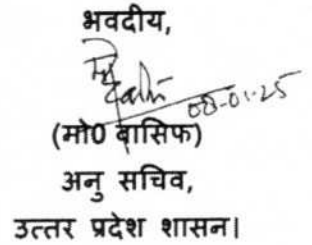 भवदीय,
08-01-25
(मो0 वासिफ)
अनु सचिव,
उत्तर प्रदेश शासन।